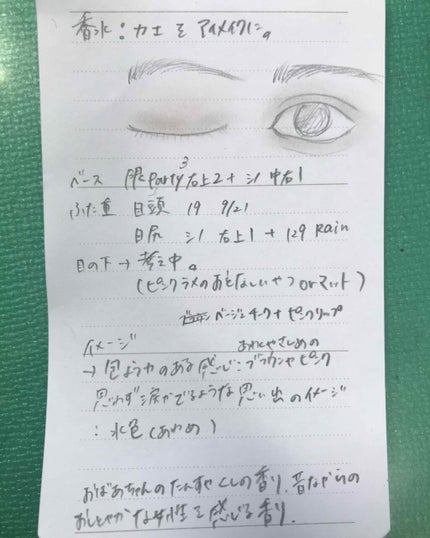 香水:カエをアイメイクに。
ベース 限party3右上2+シ1中右1
ふた重 目頭 19 9/21
目尻 シ1 右上1+129 Rain
目の下→考え中。
(ピンクラメのおとなしいやつorマット)
ベージュチーク+ピンクリップ
イメージ
→包ようかのある感じ:ブラウンやピンク
思わず涙がでるような思い出のイメージ
:水色(あわめ)
おばあちゃんのたんすやくしの香り、昔ながらの
おしとやかな女性を感じる香り.